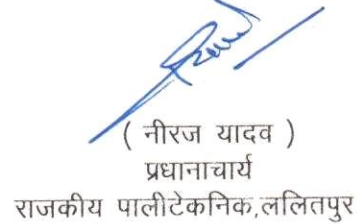 ( नीरज यादव )
प्रधानाचार्य
राजकीय पालीटेकनिक,ललितपुर